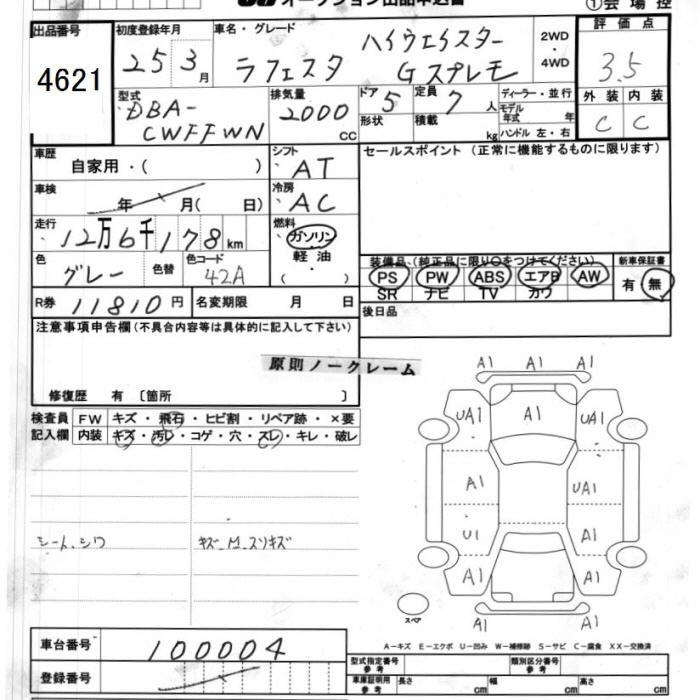 オークション出品申込書
①会場控
出品番号
4621
初度登録年月
25 3月
車名・グレード
ラフェスタ
ハイウェイスター
Gスプレモ
2WD
・
4WD
評価点
3.5
外装 内装
C C
型式
DBA-
CWFFWN
排気量
2000
CC
ドア
5
形状
定員
7人
積載
kg
ディーラー・並行
モデル
年式 年
ハンドル 左・右
車歴
自家用・( )
シフト
AT
セールスポイント (正常に機能するものに限ります)
車検
年 月( 日)
冷房
AC
走行
12万6千178km
燃料
ガソリン
軽油
( ・ )
色
グレー
色替
色コード
42A
装備品 (純正品に限り○をつけてください)
PS PW ABS エアB AW
SR ナビ TV カワ
新車保証書
有 無
R券 11810円
名変期限 月 日
後日品
注意事項申告欄(不具合内容等は具体的に記入して下さい)
原則ノークレーム
修復歴 有 〔箇所 〕
検査員
記入欄
FW キズ・飛石・ヒビ割・リペア跡・×要
内装 キズ・汚レ・コゲ・穴・スレ・キレ・破レ
シート、シワ
キズ、M、スリキズ
A1 A1 A1
UA1 A1 UA1
A1 UA1
U1 A1
A1 A1
A1 A1
スペア
A-キズ E-エクボ U-凹み W-補修跡 S-サビ C-腐食 XX-交換済
車台番号
100004
登録番号
型式指定番号
参考
類別区分番号
参考
車庫証明用
参考
長さ cm
幅 cm
高さ cm